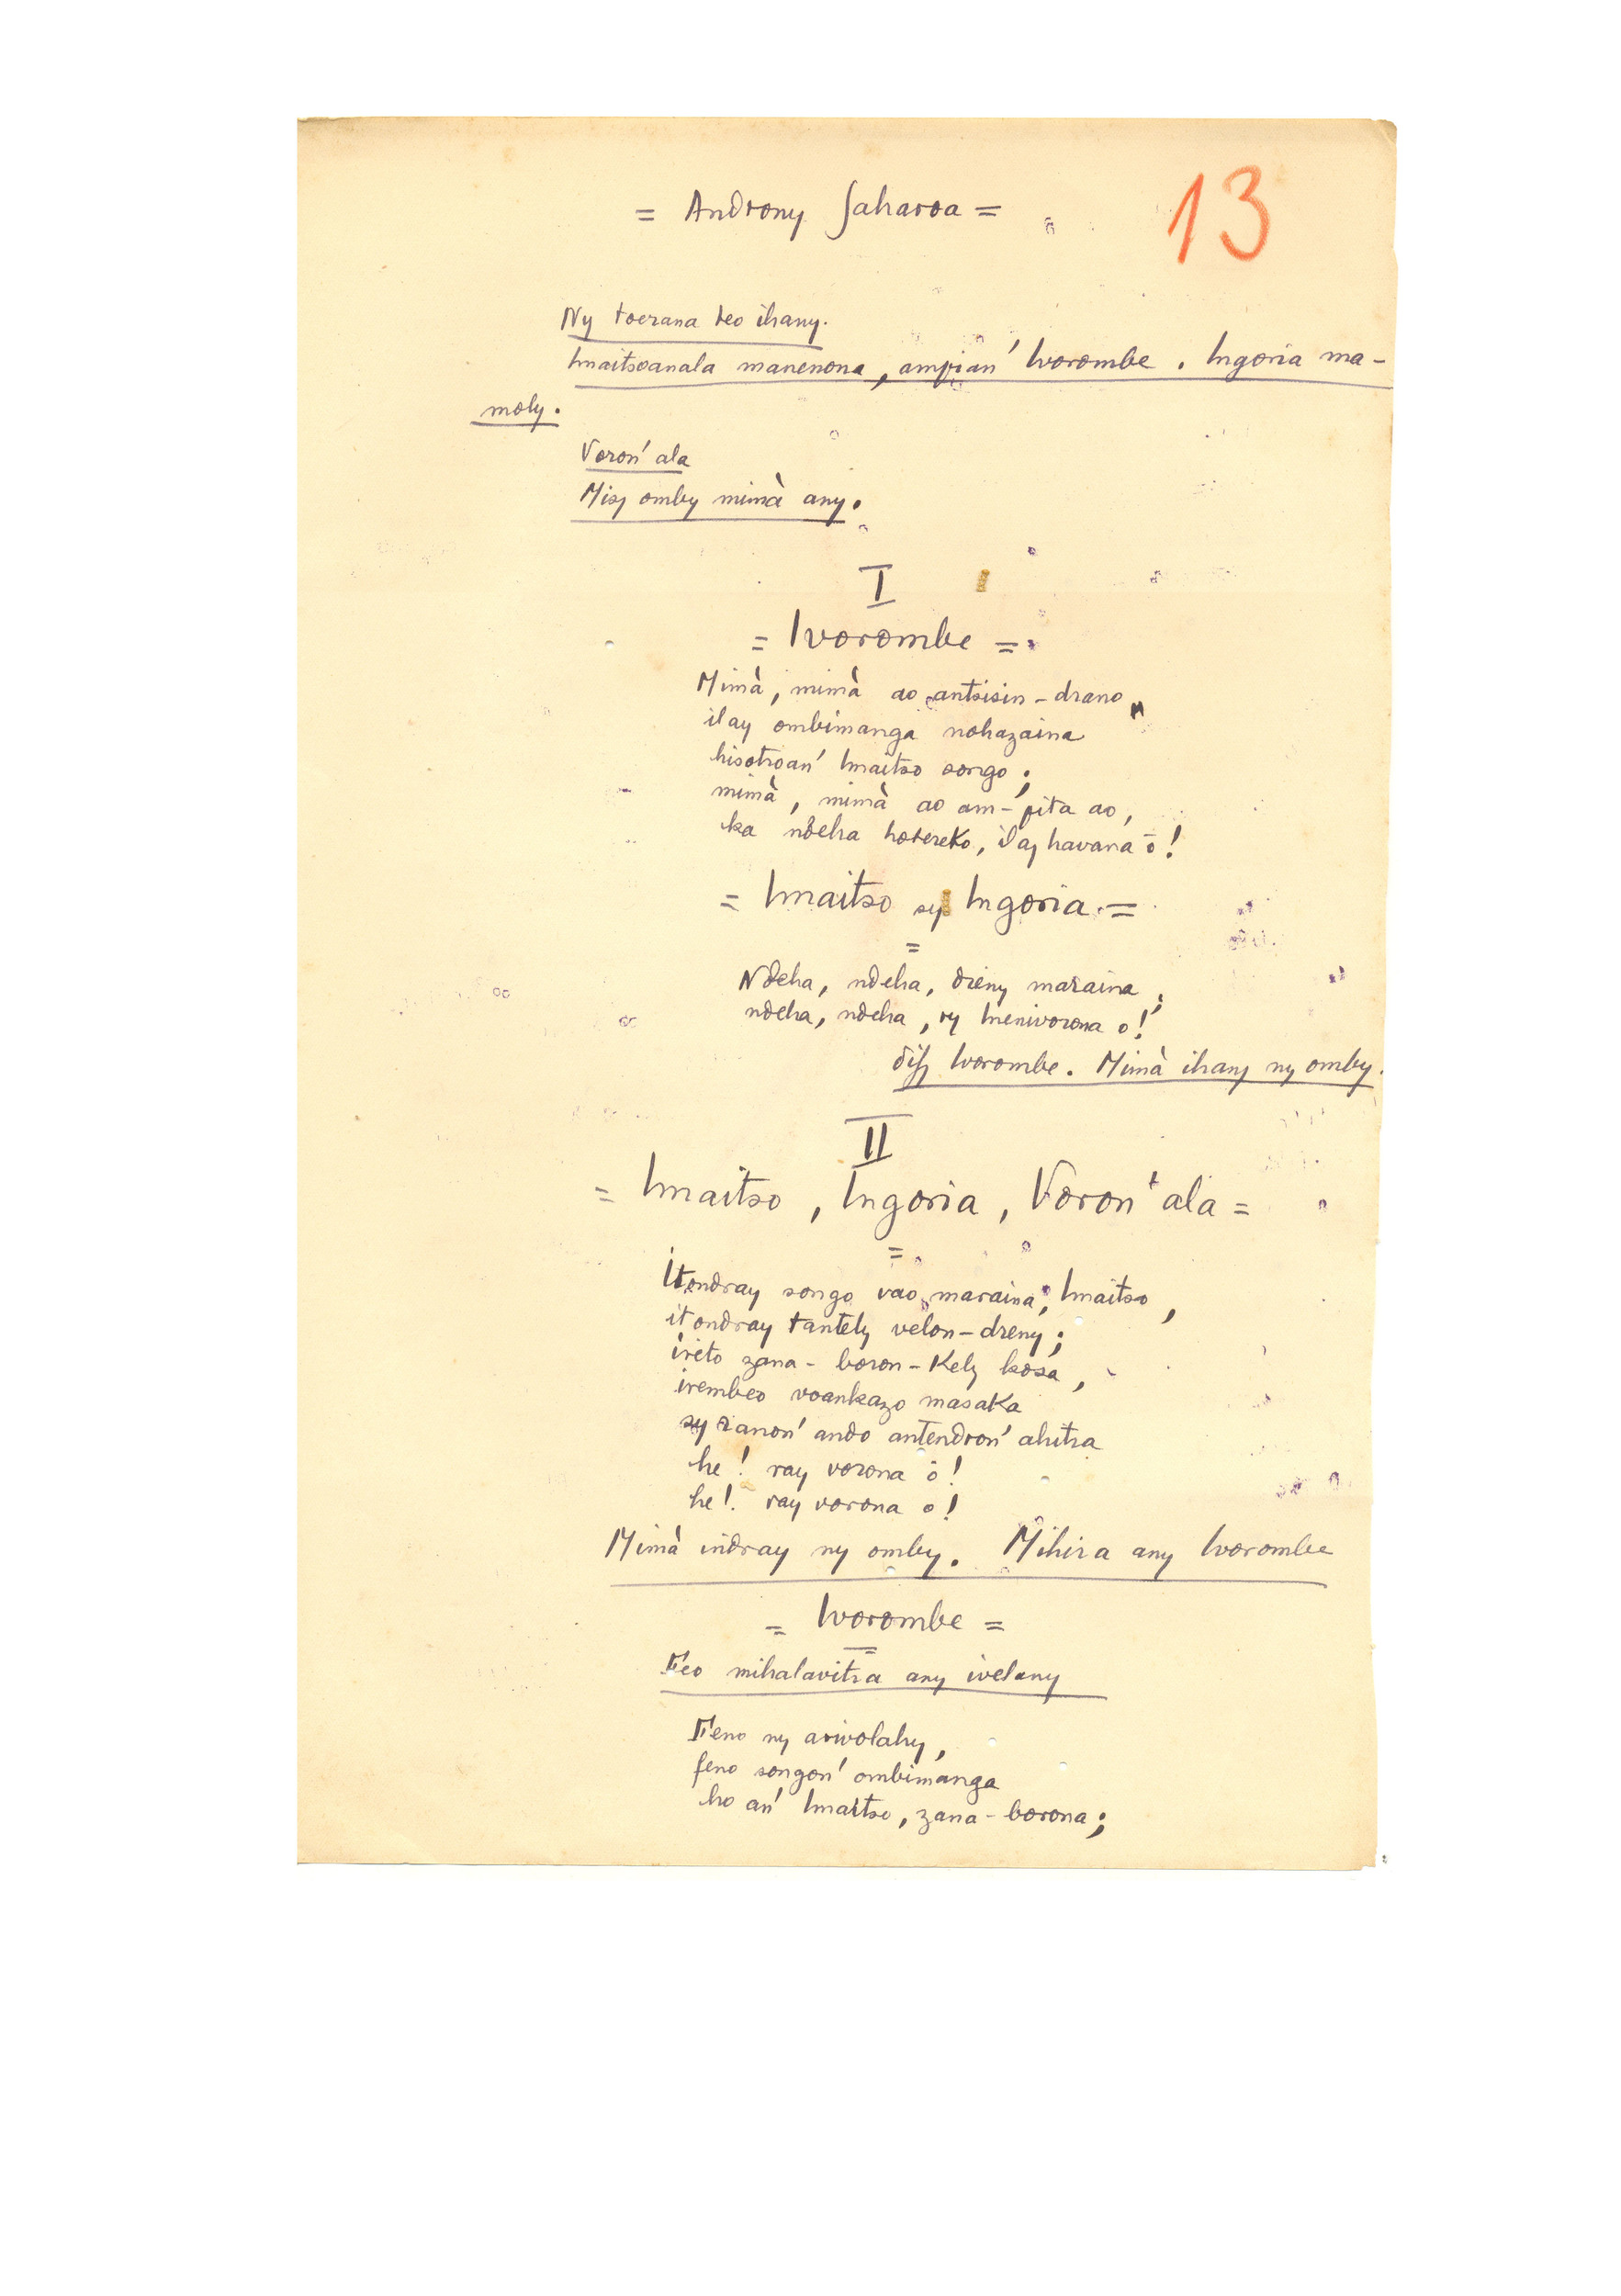 = Androny Saharoa =
13
Ny toerana teo ihany.
Imaitsoanala manenona, ampian' Ivorombe. Ingoria ma-
moly.
Voron' ala
Misy omby mimà any.
I
= Ivorombe =
Mimà, mimà ao antsisin-drano
ilay ombimanga nohazaina
hisotroan' Imaitso songo;
mimà, mimà ao am-pita ao,
ka ndeha hotereko, ilay havana ô!
= Imaitso sy Ingoria =
=
Ndeha, ndeha, dieny maraina;
ndeha, ndeha, ry Inenivorona o!
Ivorombe. Mimà ihany ny omby.
II
= Imaitso, Ingoria, Voron' ala =
=
Itondray songo vao maraina, Imaitso,
itondray tantely velon-dreny;
ireto zana-boron-kely kosa,
irembeo voankazo masaka
sy ranon' ando antendron' ahitra
he! ray vorona ô!
he! ray vorona o!
Mimà indray ny omby. Mihira any Ivorombe
= Ivorombe =
=
Feo mihalavitra any ivelany
Feno ny arivolahy,
feno songon' ombimanga
ho an' Imaitso, zana-borona;